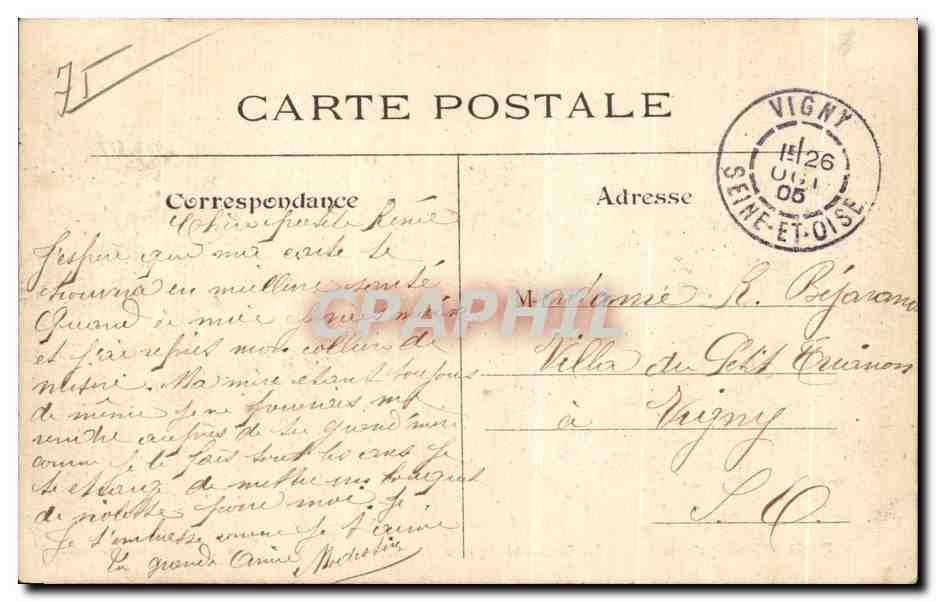 75
CARTE POSTALE
VIGNY
1E/26
OCT
05
SEINE-ET-OISE
Correspondance
Adresse
Chère petite Rénée
J'espère que ma carte te
trouvera en meilleure santé
Quand à moi je vais
et j'ai repris mon collier de
misère. Ma mère étant toujours
de même je ne pourrais me
rendre auprès de ta grand'mère
comme je le fais tout les ans je
te de mettre un bouquet
de violette pour moi. je
t'embrasse comme je t'aime
Ta grande Amie
Madame R. Béjarano
Villa du Petit Trianon
à Vigny
S. O.
CPAPHIL